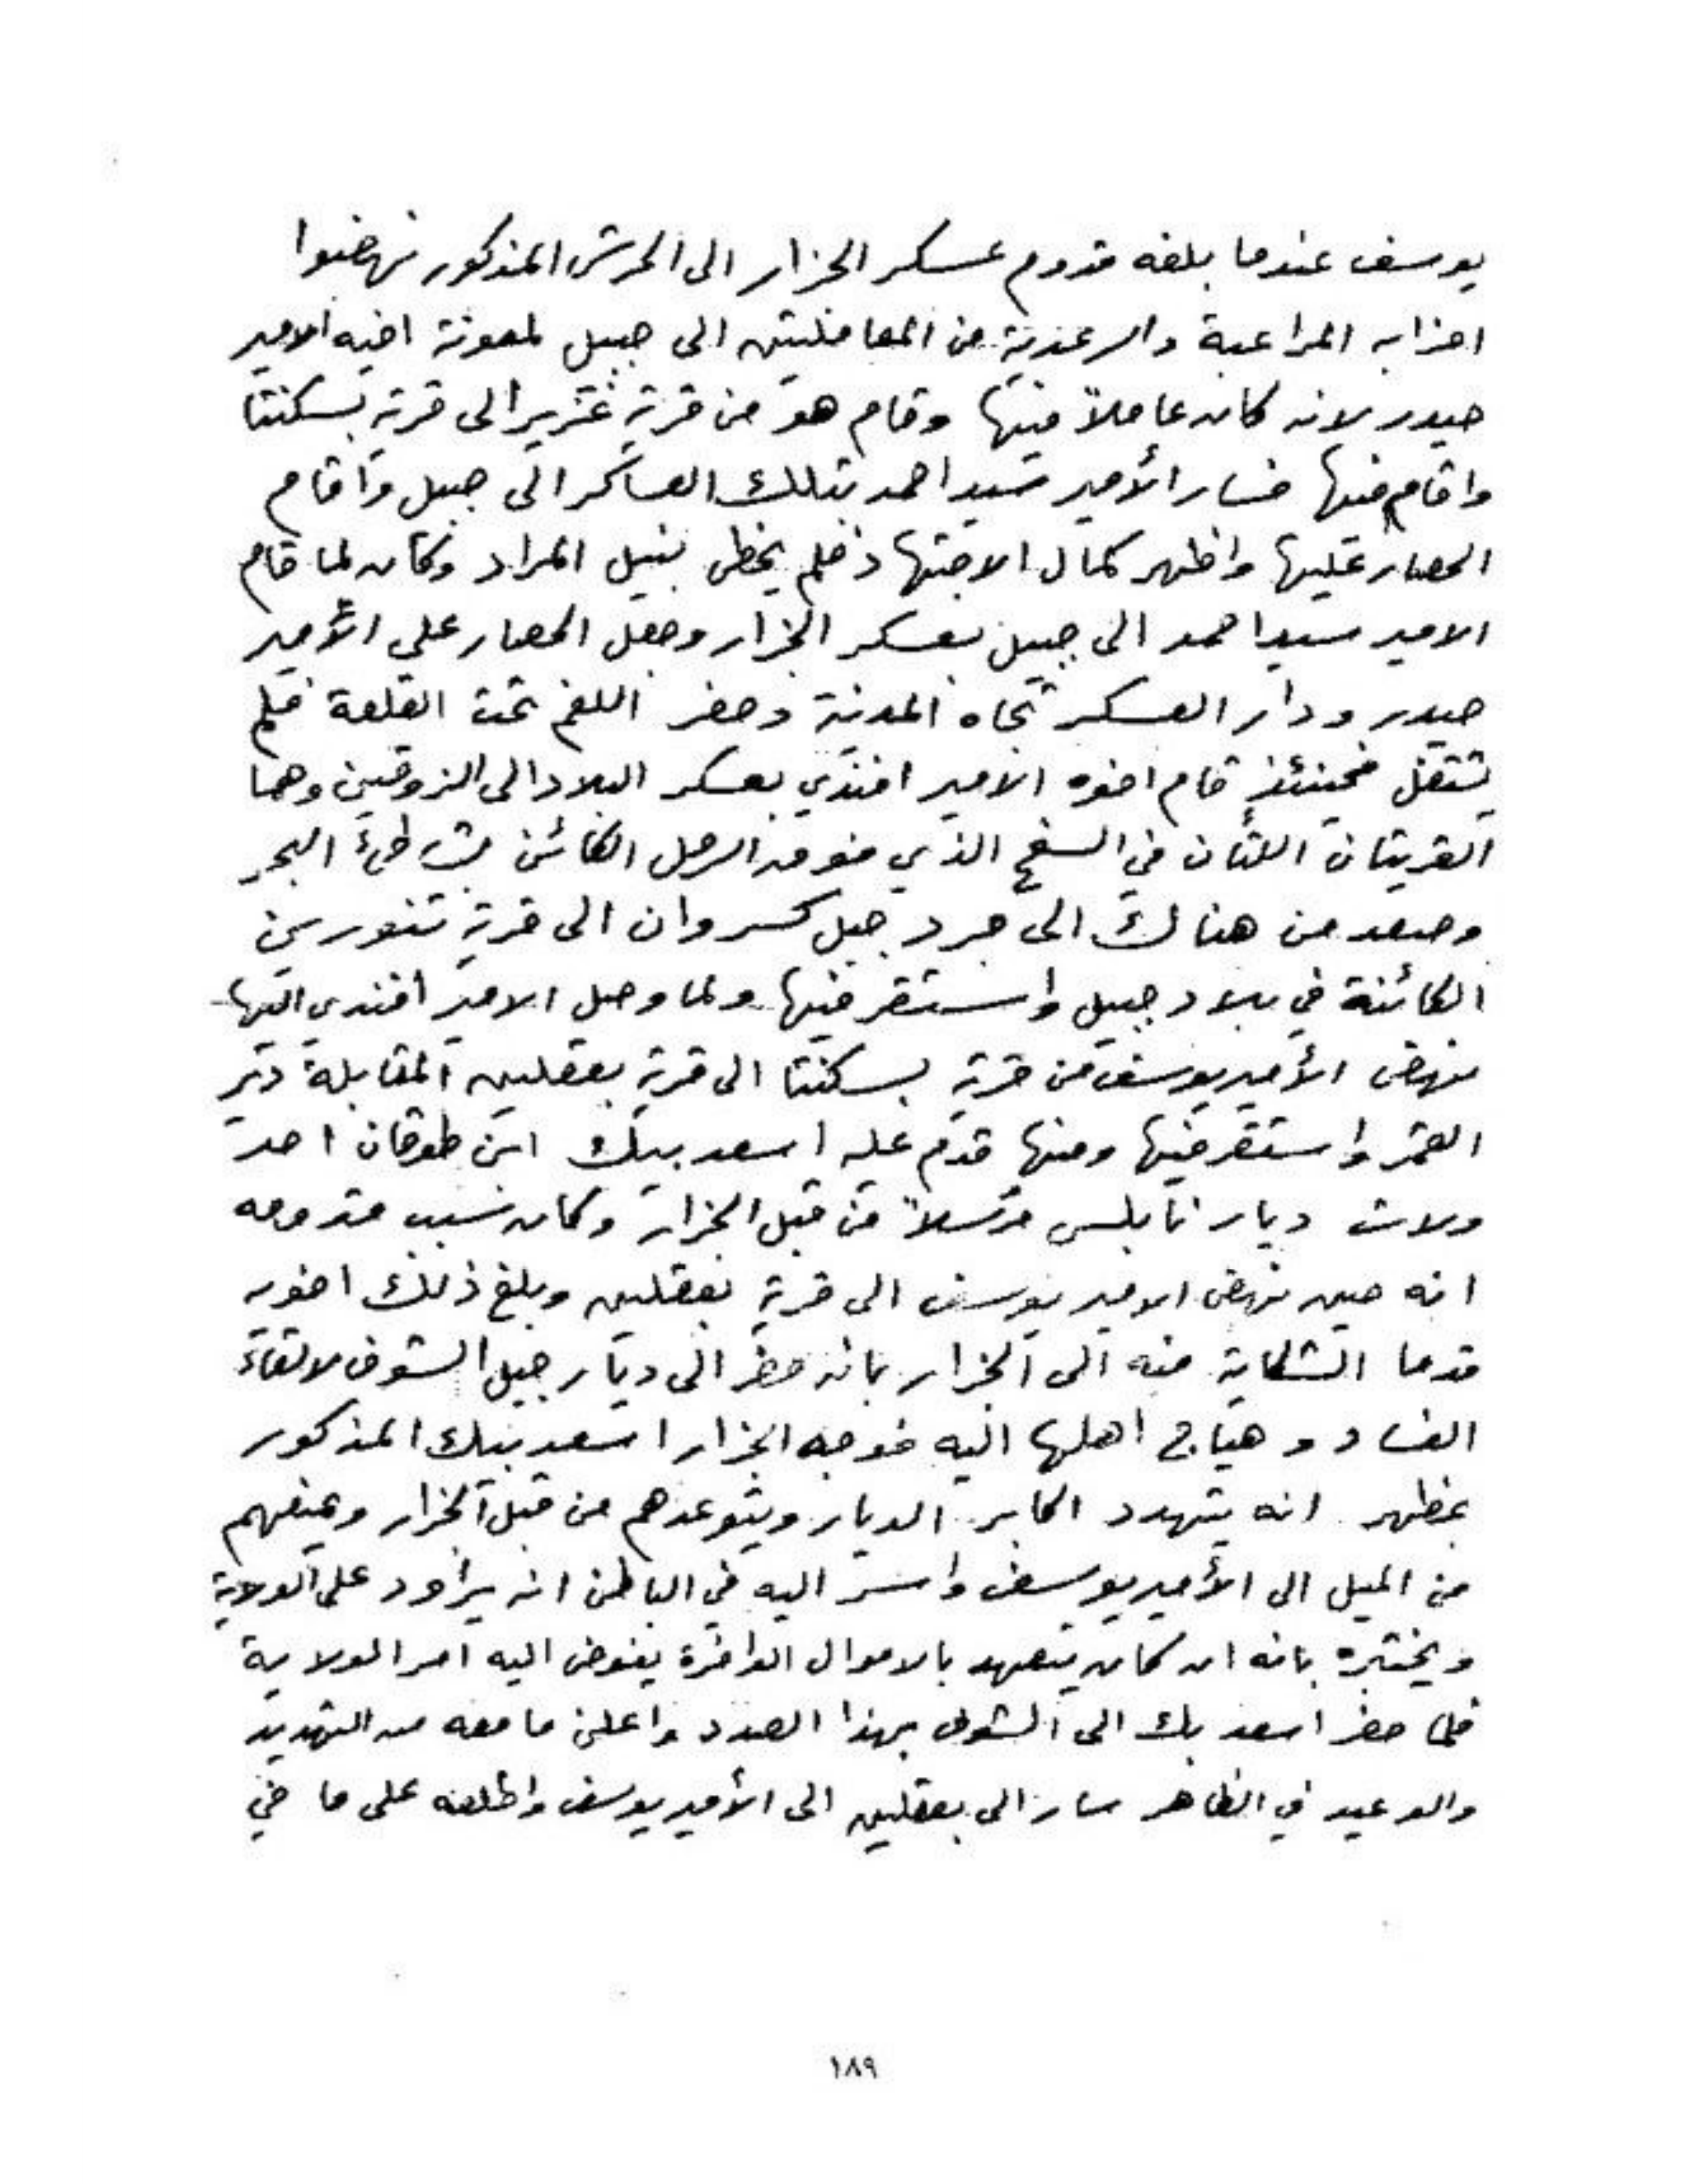 يوسف عندما بلغه قدوم عسكر الجزار الى الحرش المذكور نهضوا
احزابه المراعبة والرعدية من المعاملتين الى جبيل لمعونة اخيه الامير
حيدر لانه كان عاملاً فيها وقام هو من قرية غزير الى قرية بسكنتا
واقام فيها فسار الأمير سيد احمد بتلك العساكر الى جبيل واقام
الحصار عليها واظهر كمال الاجتهاد فلم يحظى بنيل المراد وكان لما قام
الامير سيد احمد الى جبيل بعسكر الجزار وجعل الحصار على الأمير
حيدر ودار العسكر تجاه المدينة وحفر اللغم تحت القلعة فلم
يشتغل فحينئذٍ قام اخوه الامير افندي بعسكر البلاد الى الزوقين وهما
القريتان اللتان في السفح الذي فوق الرمل الكائن بشاطىء البحر
وصعد من هناك الى جرد جبل كسروان الى قرية تنورين
الكائنة في بلاد جبيل واستقر فيها ولما وصل الامير افندي اليها
نهض الأمير يوسف من قرية بسكنتا الى قرية بعقلين المقابلة دير
القمر واستقر فيها ومنها قدم عليه اسعد بيك ابن طوقان احد
ولات ديار نابلس مرسلاً من قبل الجزار وكان سبب قدومه
انه حين نهض الامير يوسف الى قرية بعقلين وبلغ ذلك اخويه
قدما الشكاية منه الى الجزار بانه حضر الى ديار جبل الشوف لالقاء
الفساد وهياج اهلها اليه فوجه الجزار اسعد بيك المذكور
بمظهر انه يتهدد اكابر الديار ويتوعدهم من قبل الجزار ويمنعهم
من الميل الى الأمير يوسف واسر اليه في الباطن انه يراود على الولاية
ويختبره بانه ان كان يتعهد بالاموال الوافرة يفوض اليه امر الولاية
فلما حضر اسعد بك الى الشوف بهذا الصدد واعلن ما معه من التهديد
والوعيد في الظاهر سار الى بعقلين الى الأمير يوسف واطلعه على ما في
١٨٩